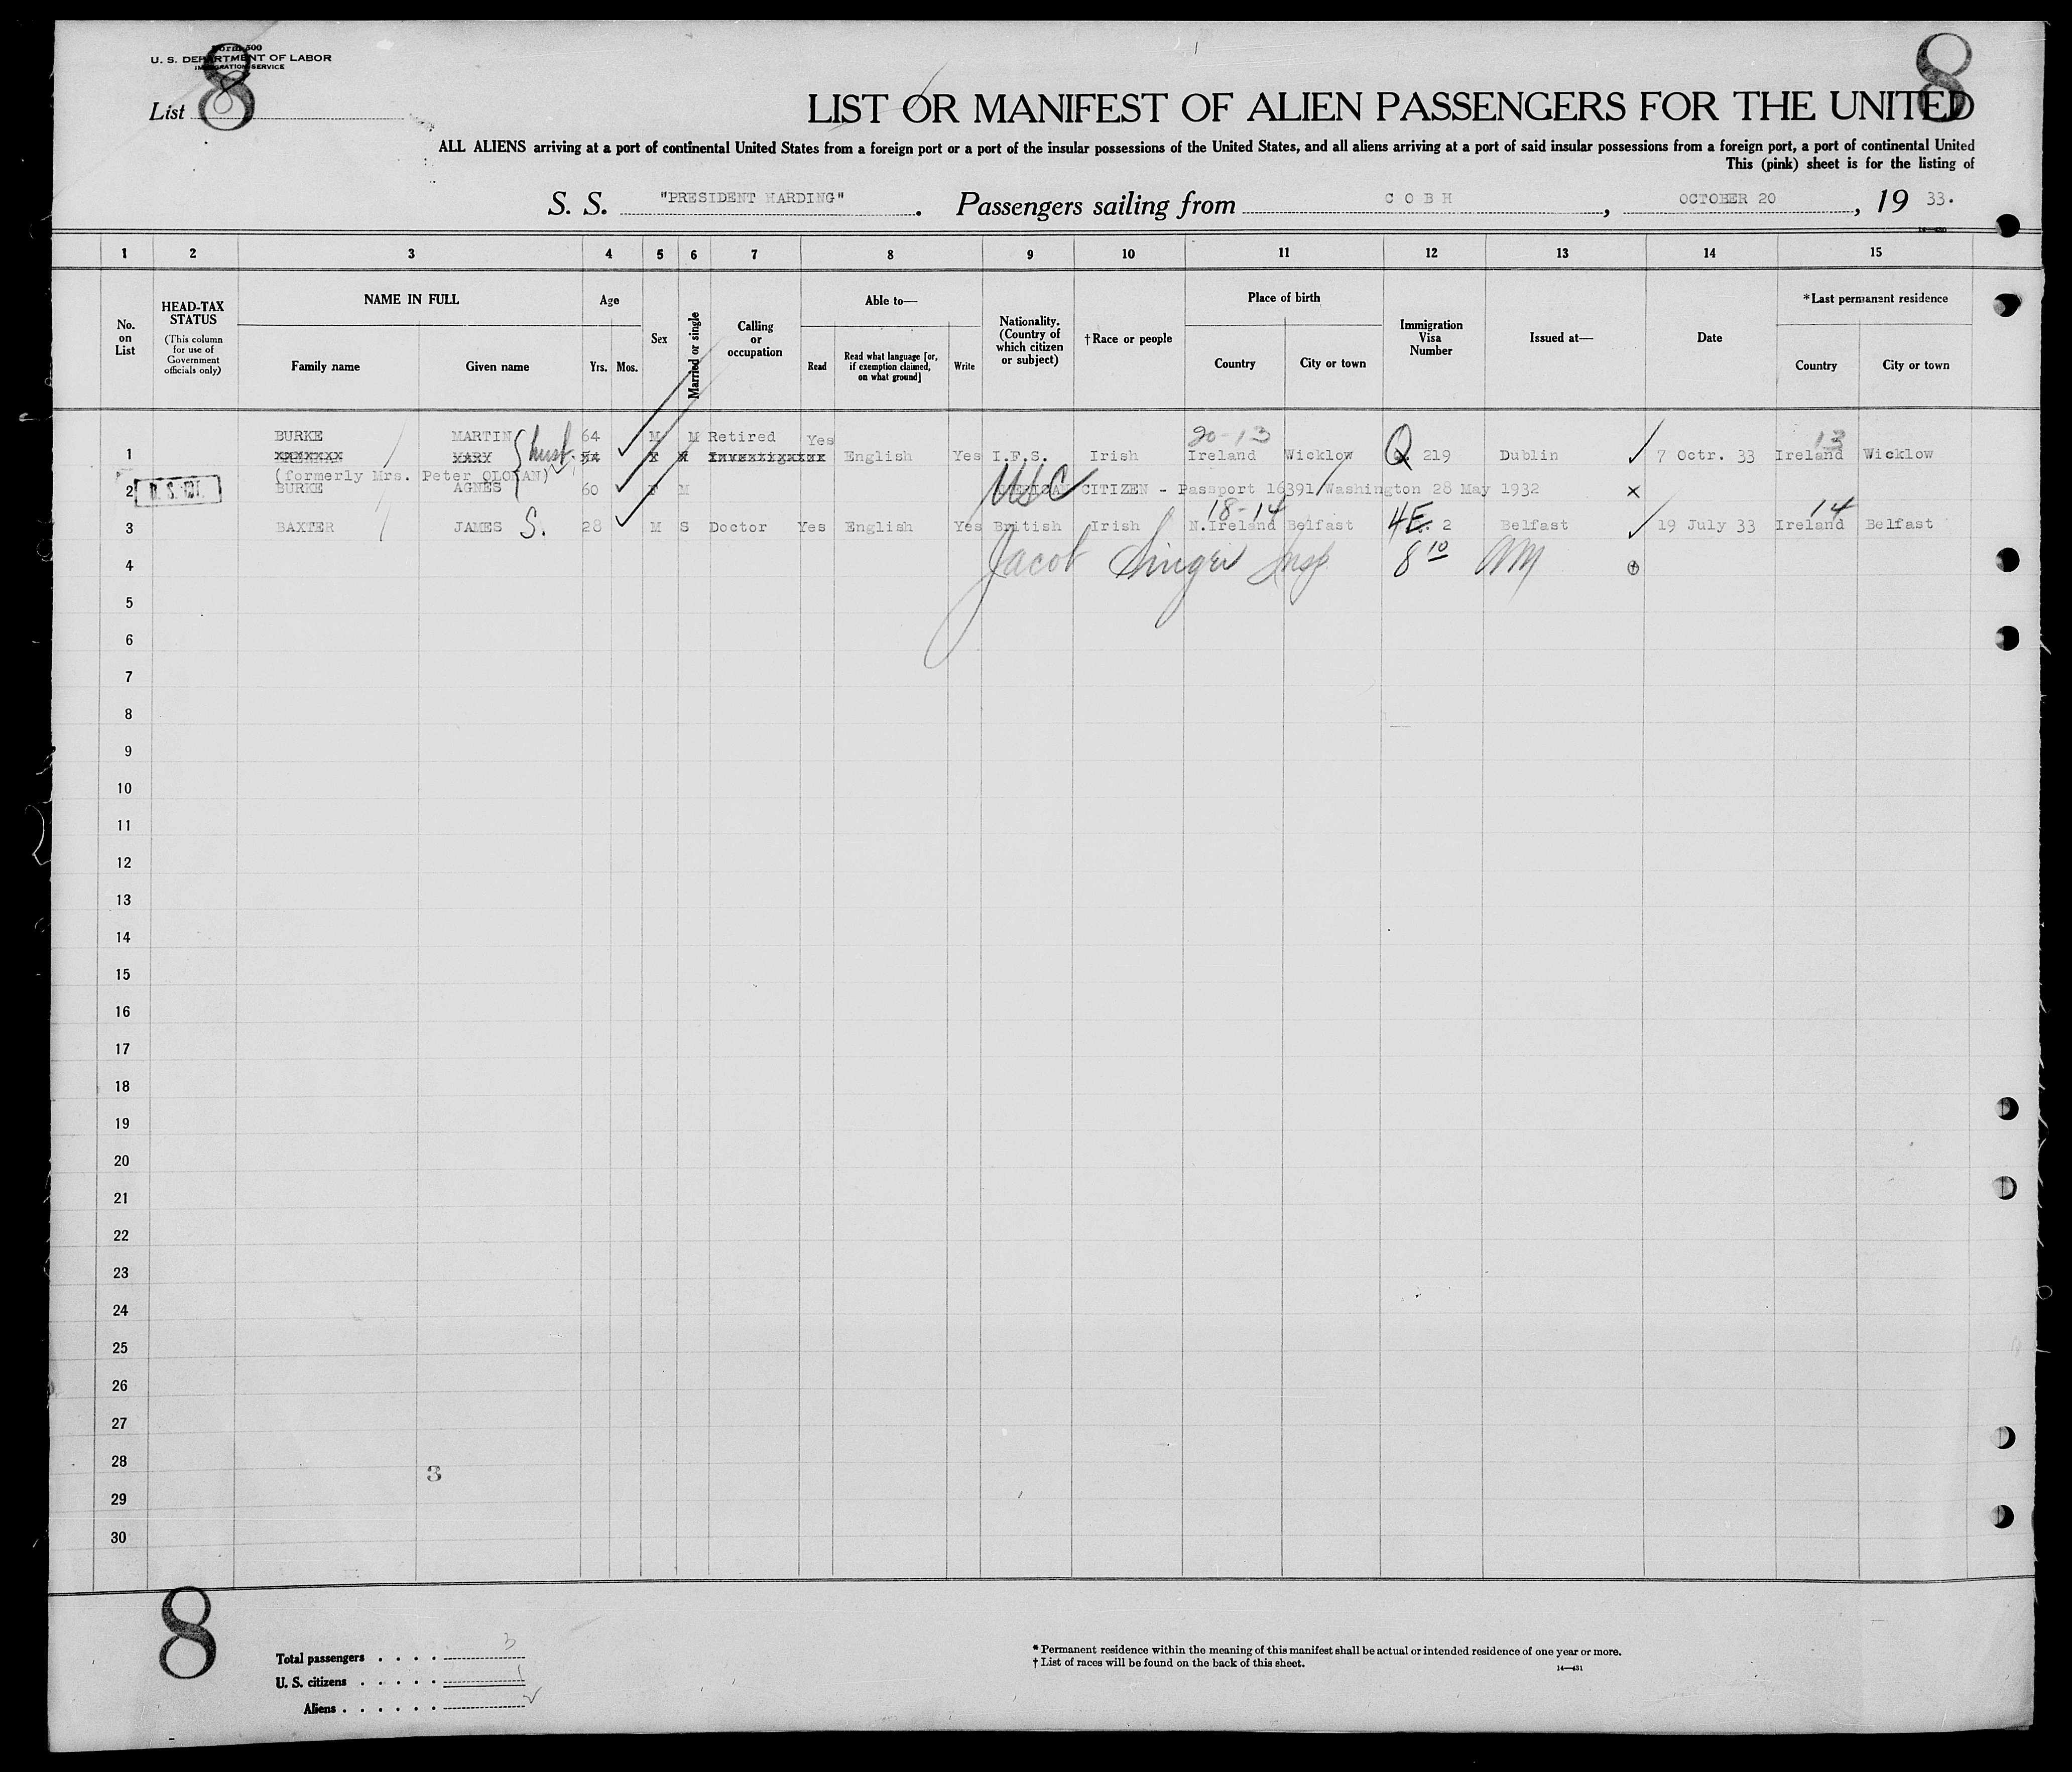 Form 500
U. S. DEPARTMENT OF LABOR
IMMIGRATION SERVICE
8
8
List
LIST OR MANIFEST OF ALIEN PASSENGERS FOR THE UNITED
ALL ALIENS arriving at a port of continental United States from a foreign port or a port of the insular possessions of the United States, and all aliens arriving at a port of said insular possessions from a foreign port, a port of continental United
This (pink) sheet is for the listing of
S. S. "PRESIDENT HARDING". Passengers sailing from C O B H, OCTOBER 20, 19 33.
14—430
1 2 3 4 5 6 7 8 9 10 11 12 13 14 15
No. on List
HEAD-TAX STATUS
(This column for use of Government officials only)
NAME IN FULL
Family name
Given name
Age
Yrs. Mos.
Sex
Married or single
Calling or occupation
Able to—
Read
Read what language [or, if exemption claimed, on what ground]
Write
Nationality. (Country of which citizen or subject)
†Race or people
Place of birth
Country
City or town
Immigration Visa Number
Issued at—
Date
*Last permanent residence
Country
City or town
20-13 13
BURKE MARTIN husb. 64 M M Retired Yes
1 MARY English Yes I.F.S. Irish Ireland Wicklow Q 219 Dublin 7 Octr. 33 Ireland Wicklow
(formerly Mrs. Peter
2 U. S. CIT. BURKE AGNES 60 F M USC CITIZEN - Passport 16391 Washington 28 May 1932 x
18-14 14
3 BAXTER JAMES S. 28 M S Doctor Yes English Yes British Irish N.Ireland Belfast 4E. 2 Belfast 19 July 33 Ireland Belfast
4 Jacob Singer Insp 8 10 AM
5
6
7
8
9
10
11
12
13
14
15
16
17
18
19
20
21
22
23
24
25
26
27
28
3
29
30
8
Total passengers . . . . 3
U. S. citizens . . . . . 1
Aliens . . . . . . 2
* Permanent residence within the meaning of this manifest shall be actual or intended residence of one year or more.
† List of races will be found on the back of this sheet.
14—431